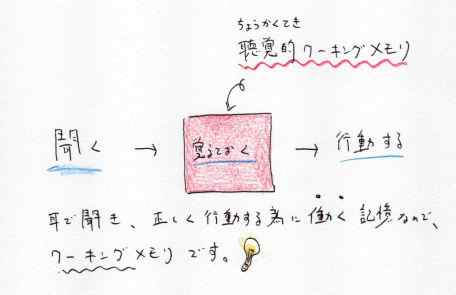 ちょうかくてき
聴覚的ワーキングメモリ
聞く → 覚えておく → 行動する
耳で聞き、正しく行動する為に働く記憶なので、
ワーキングメモリです。